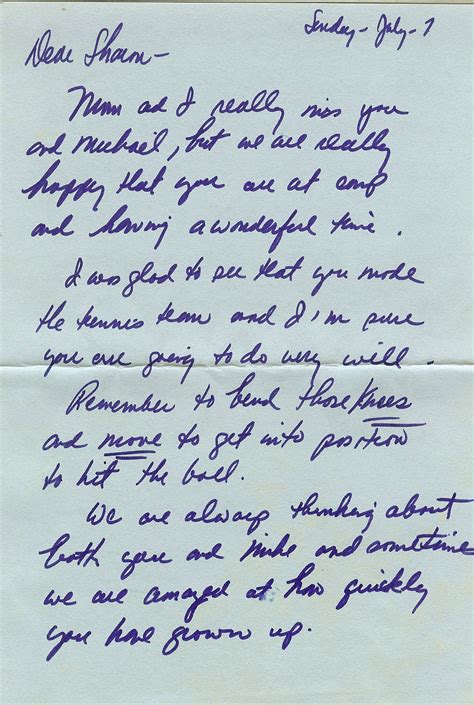 Sunday - July - 7
Dear Sharon -
Mom and I really miss you
and Michael, but we are really
happy that you are at camp
and having a wonderful time.
I was glad to see that you made
the tennis team and I'm sure
you are going to do very well.
Remember to bend those knees
and move to get into position
to hit the ball.
We are always thinking about
both you and Mike and sometime
we are amazed at how quickly
you have grown up.